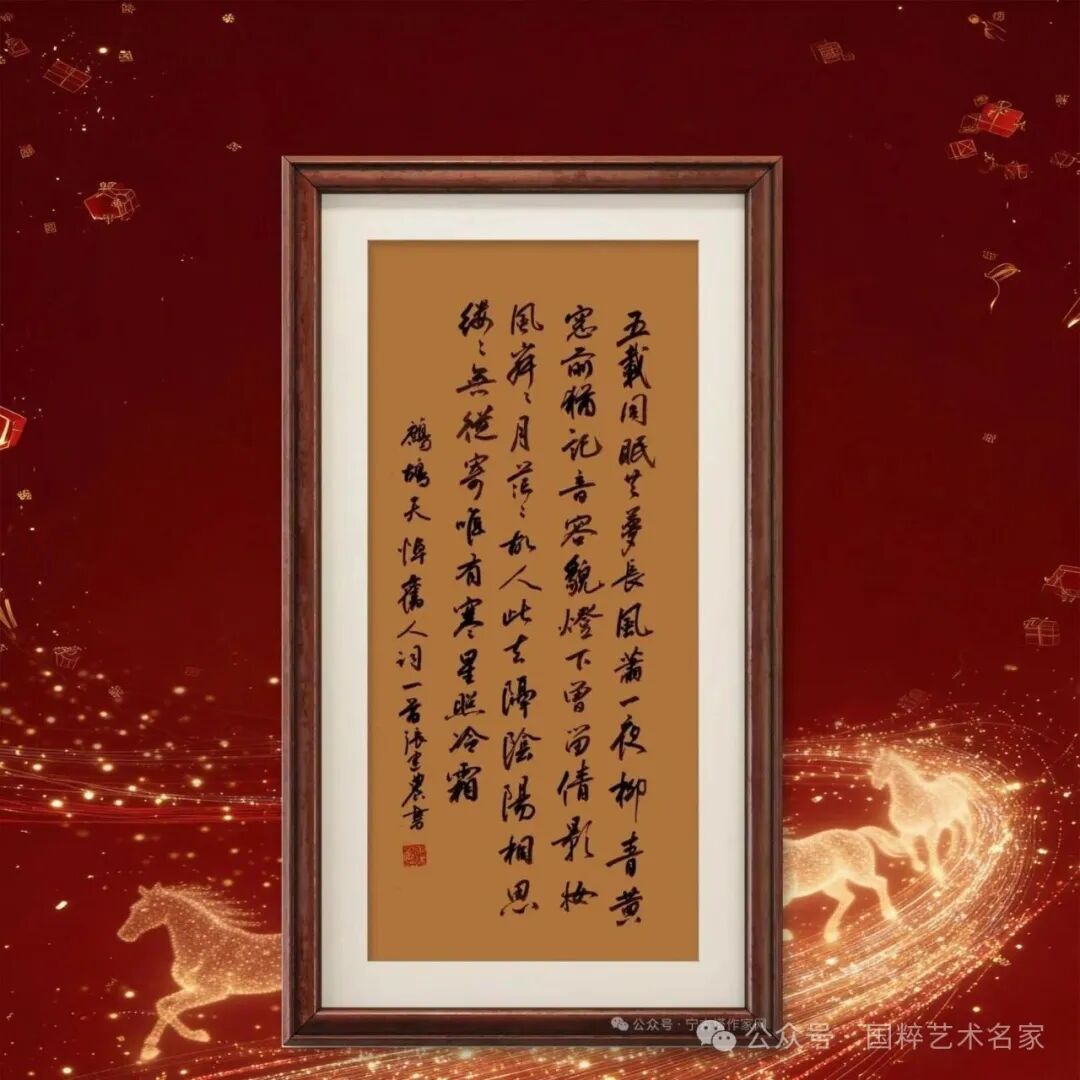 五載同眠共夢長風蕭一夜柳青黃
窓前猶記音容貌燈下曾留倩影妝
風舞〻月茫〻故人此去隔陰陽相思
縷〻無從寄唯有寒星照冷霜
鷓鴣天悼舊人詞一首張建農書
公众号·国粹艺术名家